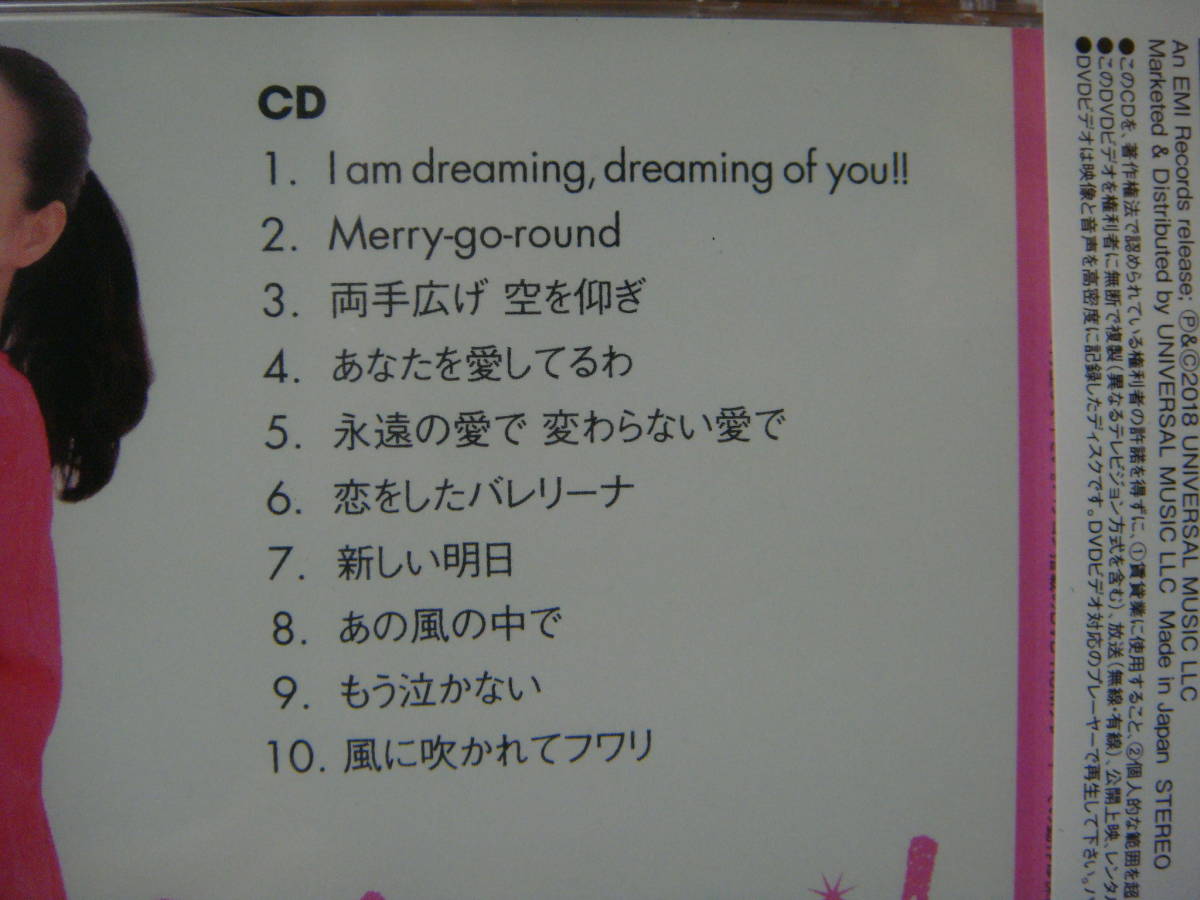 CD
1. I am dreaming, dreaming of you!!
2. Merry-go-round
3. 両手広げ 空を仰ぎ
4. あなたを愛してるわ
5. 永遠の愛で 変わらない愛で
6. 恋をしたバレリーナ
7. 新しい明日
8. あの風の中で
9. もう泣かない
10. 風に吹かれてフワリ
An EMI Records release; Ⓟ&Ⓒ2018 UNIVERSAL MUSIC LLC
Marketed & Distributed by UNIVERSAL MUSIC LLC Made in Japan STEREO
●このCDを、著作権法で認められている権利者の許諾を得ずに、①賃貸業に使用すること、②個人的な範囲を超
●このDVDビデオを権利者に無断で複製(異なるテレビジョン方式を含む)、放送(無線・有線)、公開上映、レンタル
●DVDビデオは映像と音声を高密度に記録したディスクです。DVDビデオ対応のプレーヤーで再生して下さい。